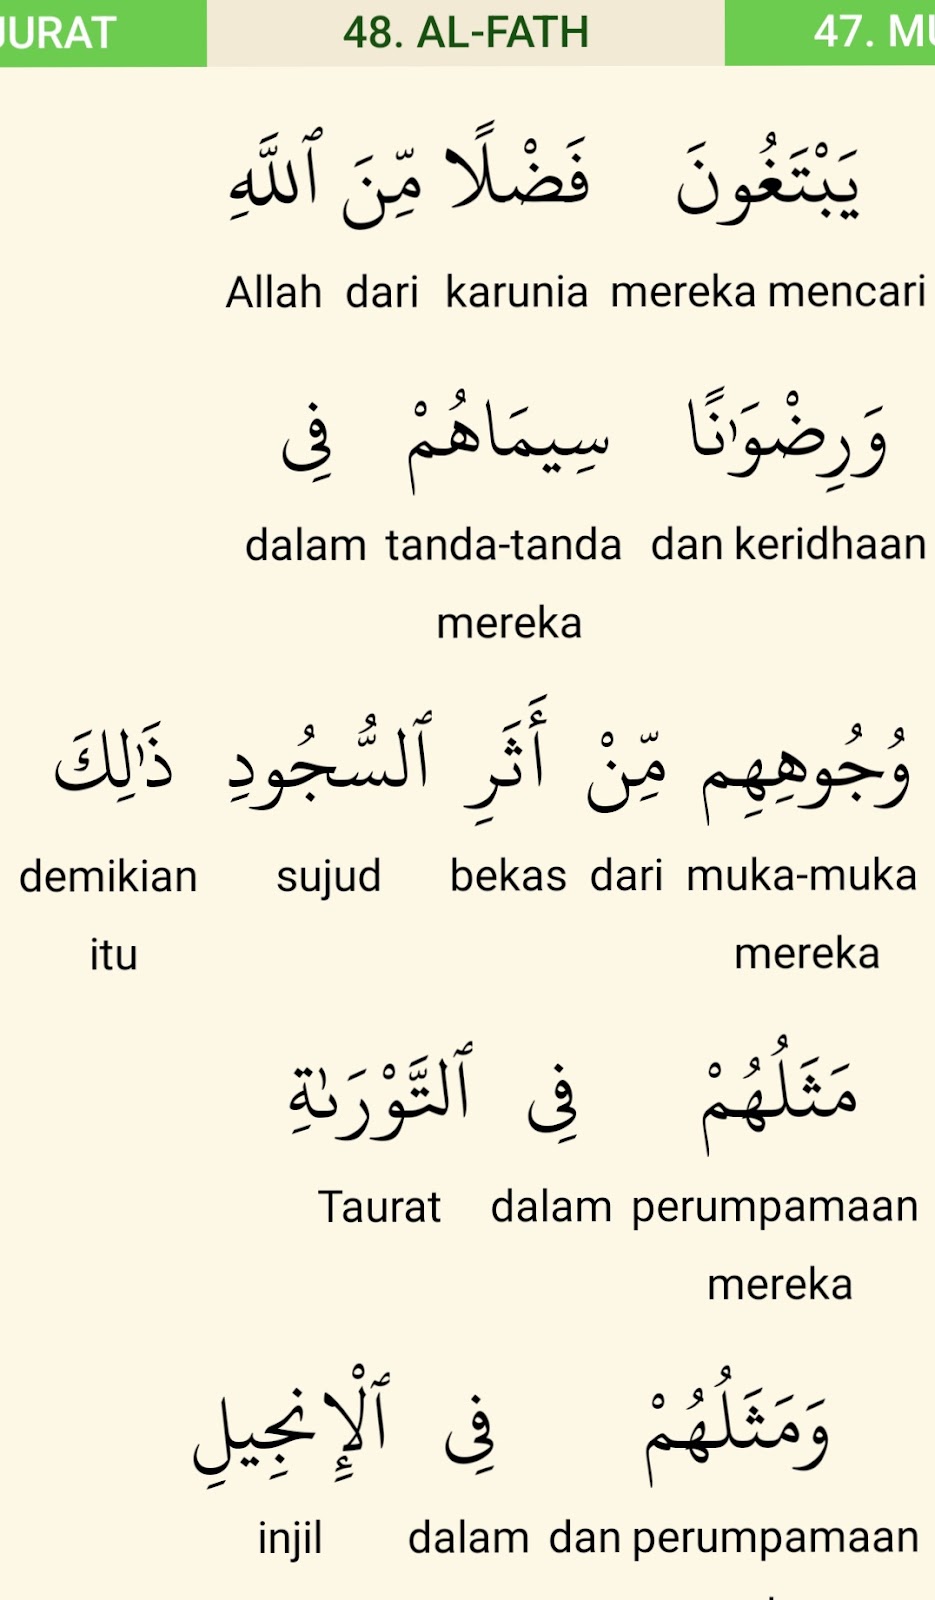 JURAT 48. AL-FATH 47. MU
يَبْتَغُونَ فَضْلًا مِّنَ ٱللَّهِ
Allah dari karunia mereka mencari
وَرِضْوَٰنًا سِيمَاهُمْ فِى
dalam tanda-tanda dan keridhaan
mereka
وُجُوهِهِم مِّنْ أَثَرِ ٱلسُّجُودِ ذَٰلِكَ
demikian sujud bekas dari muka-muka
itu mereka
مَثَلُهُمْ فِى ٱلتَّوْرَىٰةِ
Taurat dalam perumpamaan
mereka
وَمَثَلُهُمْ فِى ٱلْإِنجِيلِ
injil dalam dan perumpamaan